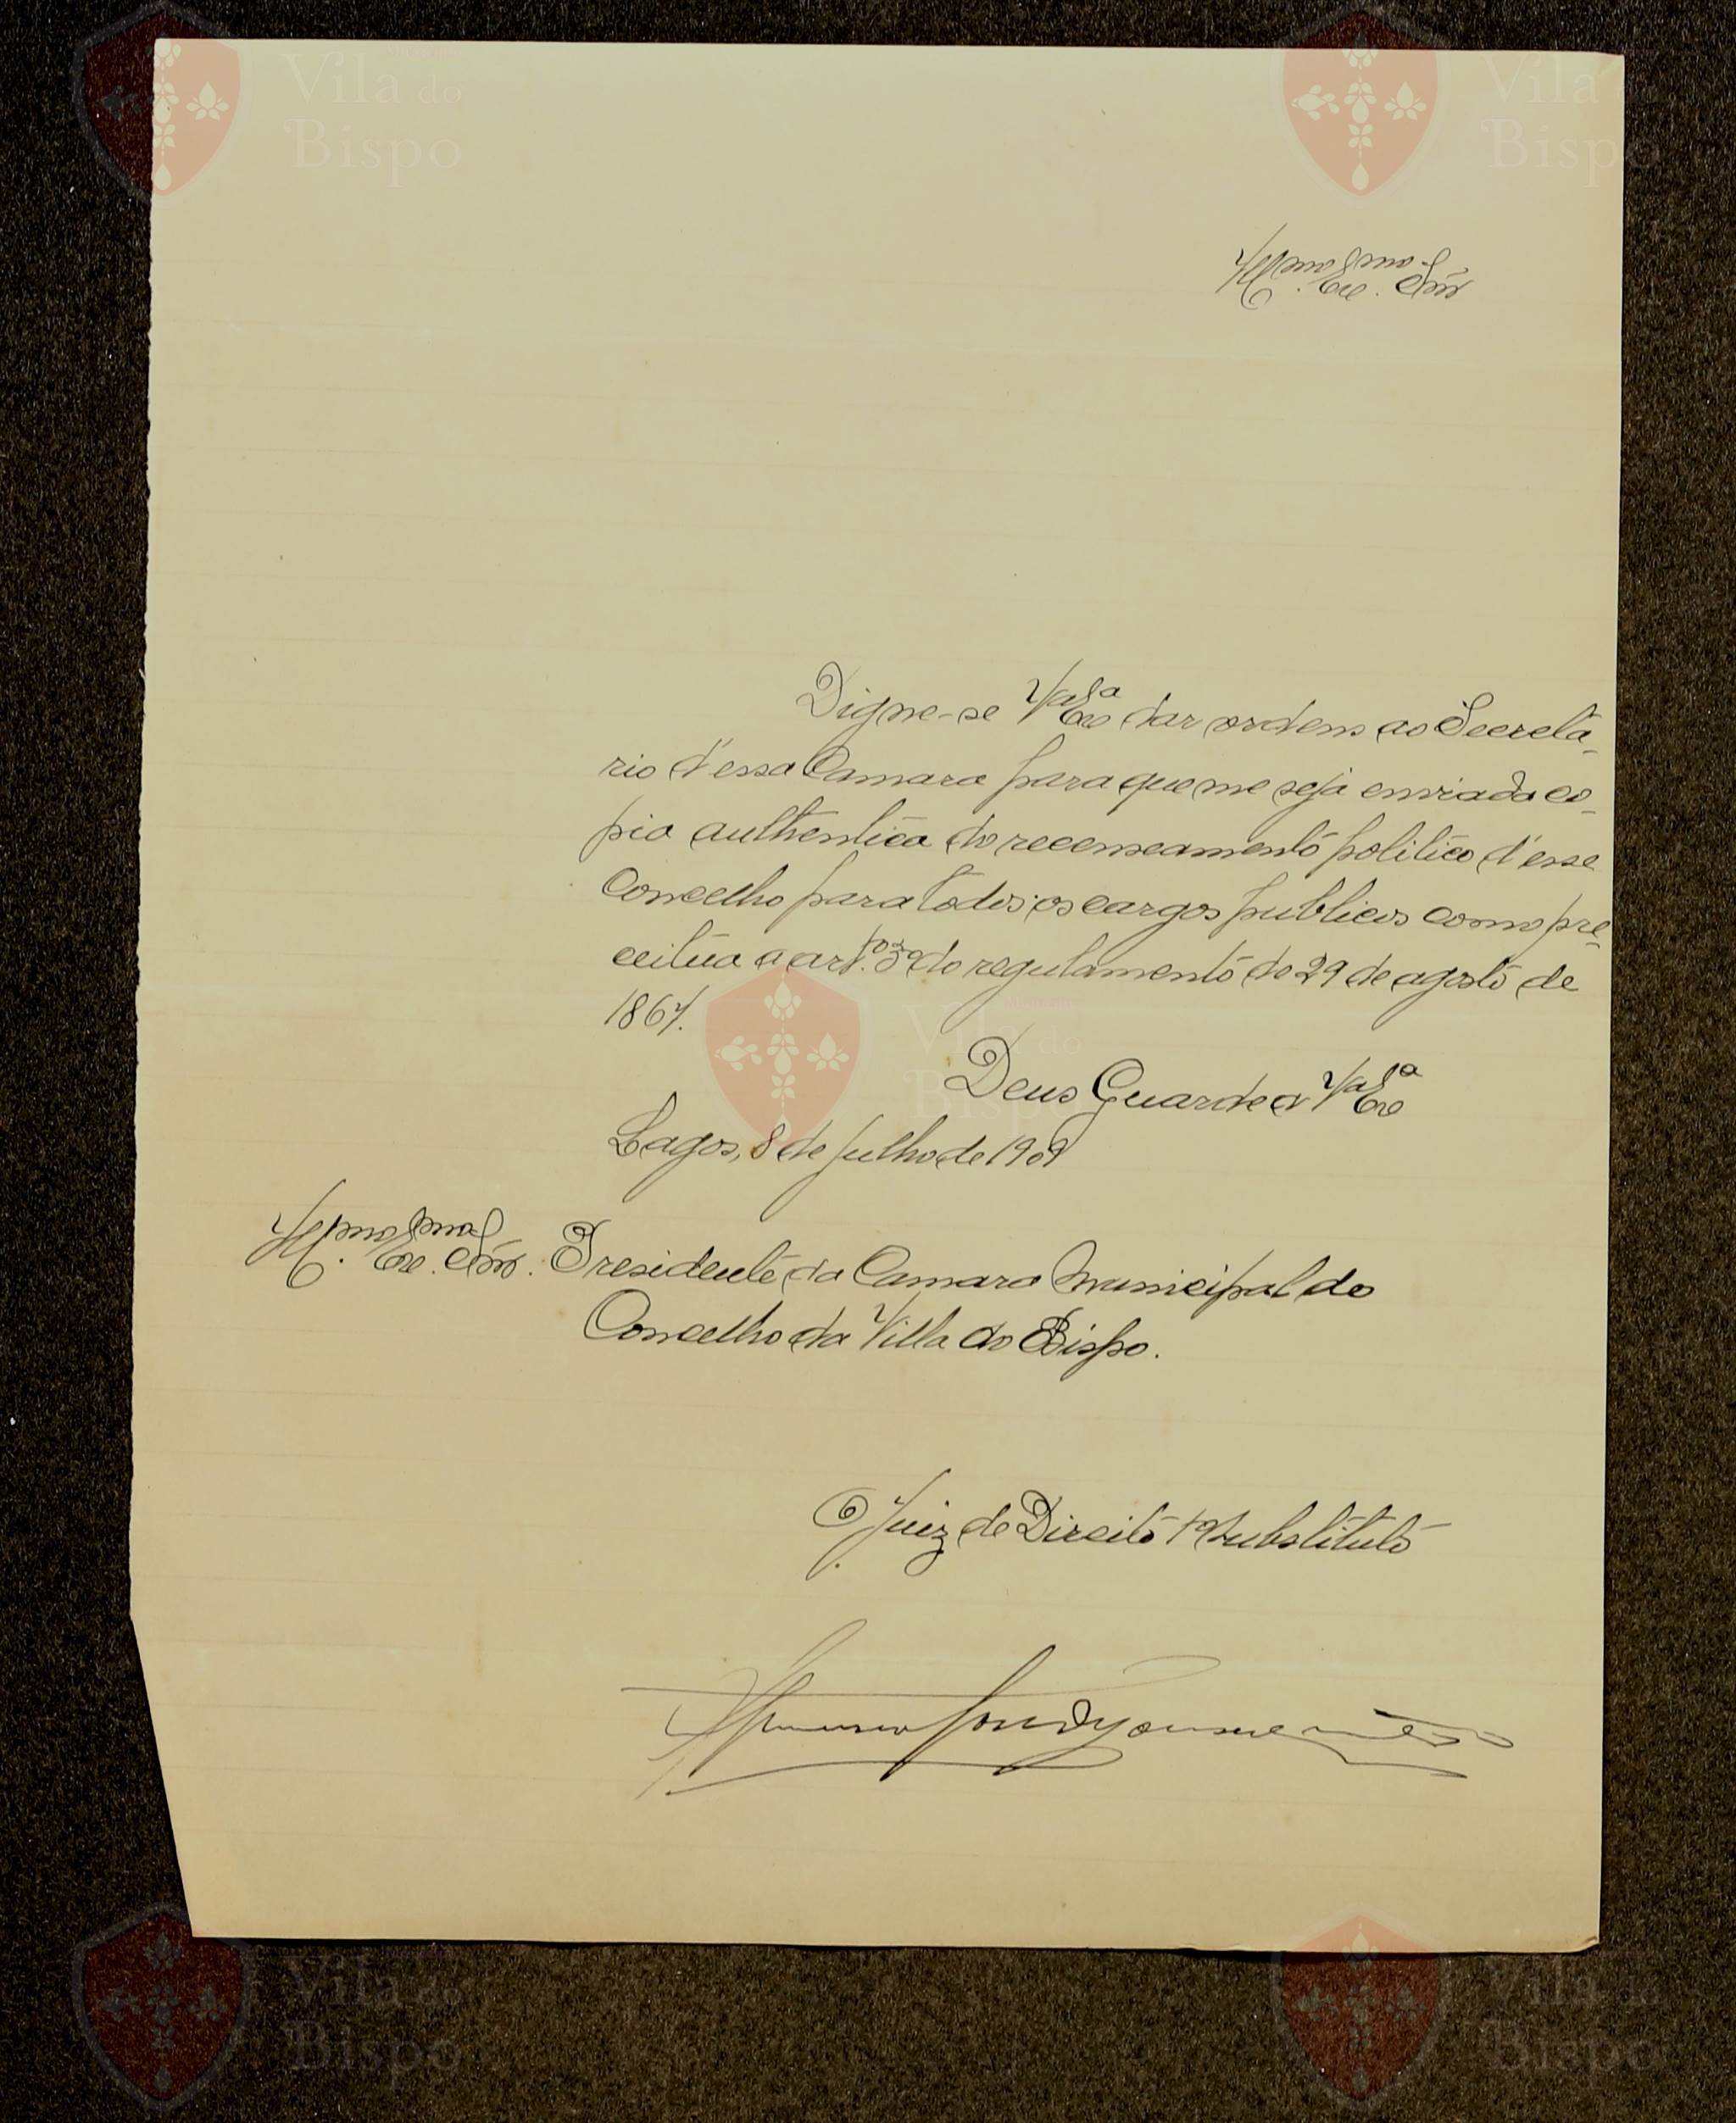 Illmo Exmo Snr
Digne-se Va Exa dar ordens ao Secreta-
rio d'essa Camara para que me seja enviada co-
pia authentica do recenseamento politico d'esse
Concelho para todos os cargos publicos como pre-
ceitúa a arto. 3º do regulamento de 29 de agosto de
1867.
Deus Guarde a Va Exa
Lagos, 8 de julho de 1909
Illmo Exmo Snr. Presidente da Camara Municipal do
Concelho da Villa do Bispo.
O Juiz de Direito substituto
Vila do
Bispo
Vila do
Bispo
Vila do
Bispo
Vila do
Bispo
Vila do
Bispo